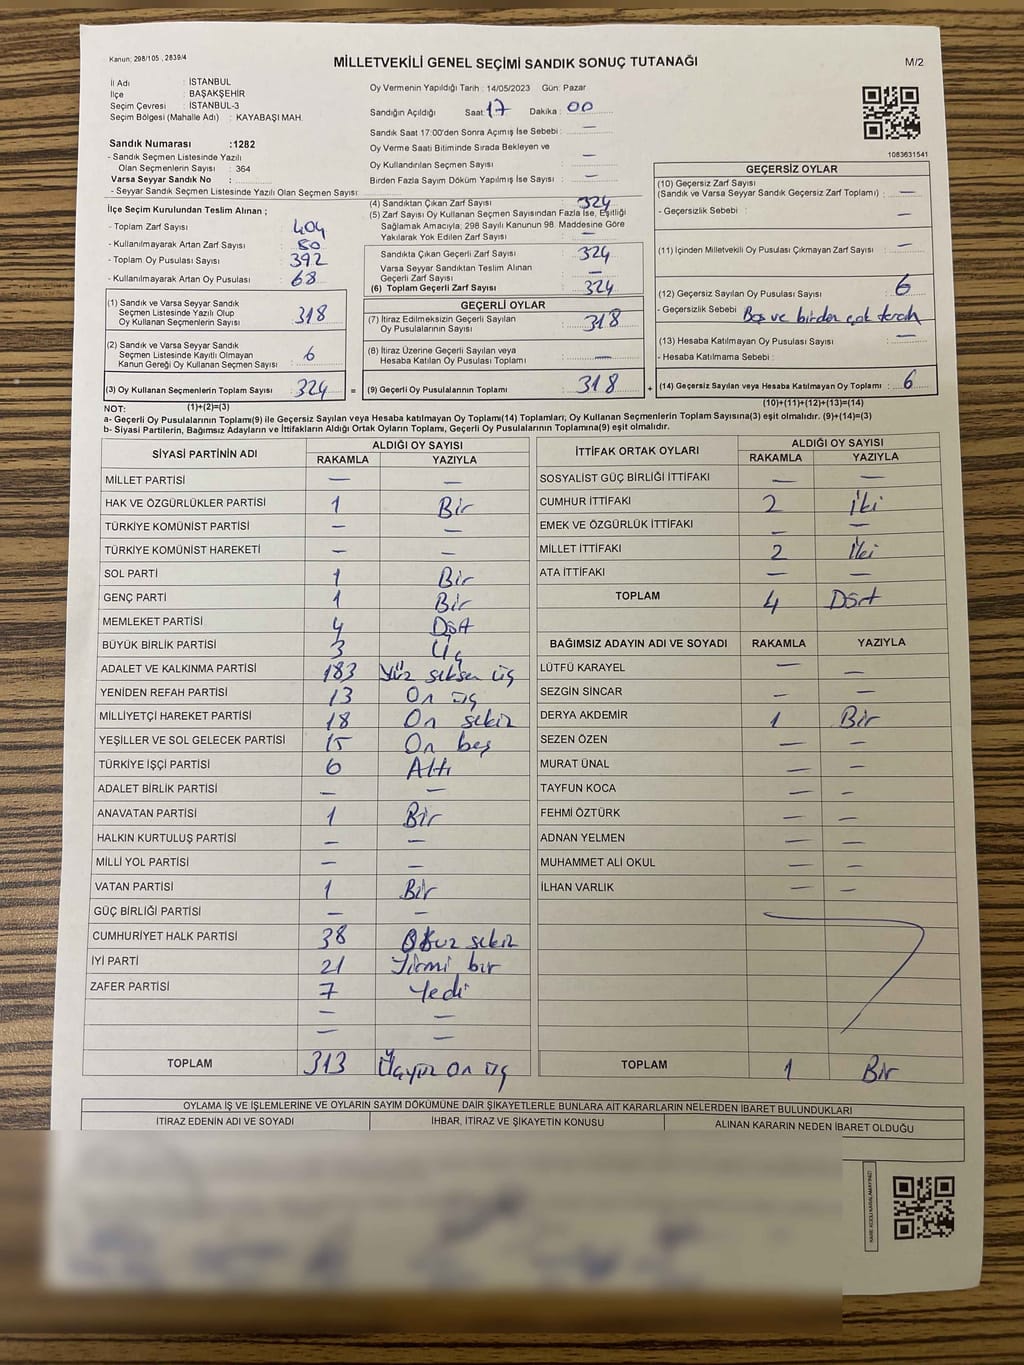 Kanun; 298/105 , 2839/4
MİLLETVEKİLİ GENEL SEÇİMİ SANDIK SONUÇ TUTANAĞI
M/2
İl Adı : İSTANBUL
İlçe : BAŞAKŞEHİR
Seçim Çevresi : İSTANBUL-3
Seçim Bölgesi (Mahalle Adı) : KAYABAŞI MAH.
Sandık Numarası :1282
- Sandık Seçmen Listesinde Yazılı
Olan Seçmenlerin Sayısı : 364
Varsa Seyyar Sandık No :
- Seyyar Sandık Seçmen Listesinde Yazılı Olan Seçmen Sayısı:
Oy Vermenin Yapıldığı Tarih : 14/05/2023 Gün: Pazar
Sandığın Açıldığı Saat: 17 Dakika : 00
Sandık Saat 17:00'den Sonra Açımış İse Sebebi : —
Oy Verme Saati Bitiminde Sırada Bekleyen ve
Oy Kullandırılan Seçmen Sayısı : —
Birden Fazla Sayım Döküm Yapılmış İse Sayısı : —
1083631541
İlçe Seçim Kurulundan Teslim Alınan ;
- Toplam Zarf Sayısı : 404
- Kullanılmayarak Artan Zarf Sayısı : 80
- Toplam Oy Pusulası Sayısı : 392
- Kullanılmayarak Artan Oy Pusulası : 68
(1) Sandık ve Varsa Seyyar Sandık
Seçmen Listesinde Yazılı Olup
Oy Kullanan Seçmenlerin Sayısı : 318
(2) Sandık ve Varsa Seyyar Sandık
Seçmen Listesinde Kayıtlı Olmayan
Kanun Gereği Oy Kullanan Seçmen Sayısı : 6
(3) Oy Kullanan Seçmenlerin Toplam Sayısı : 324
(1)+(2)=(3)
(4) Sandıktan Çıkan Zarf Sayısı : 324
(5) Zarf Sayısı Oy Kullanan Seçmen Sayısından Fazla İse, Eşitliği
Sağlamak Amacıyla, 298 Sayılı Kanunun 98. Maddesine Göre
Yakılarak Yok Edilen Zarf Sayısı : —
Sandıkta Çıkan Geçerli Zarf Sayısı : 324
Varsa Seyyar Sandıktan Teslim Alınan
Geçerli Zarf Sayısı : —
(6) Toplam Geçerli Zarf Sayısı : 324
GEÇERLİ OYLAR
(7) İtiraz Edilmeksizin Geçerli Sayılan
Oy Pusulalarının Sayısı : 318
(8) İtiraz Üzerine Geçerli Sayılan veya
Hesaba Katılan Oy Pusulası Toplamı : —
= (9) Geçerli Oy Pusulalarının Toplamı : 318 +
GEÇERSİZ OYLAR
(10) Geçersiz Zarf Sayısı
(Sandık ve Varsa Seyyar Sandık Geçersiz Zarf Toplamı) : —
- Geçersizlik Sebebi : —
(11) İçinden Milletvekili Oy Pusulası Çıkmayan Zarf Sayısı : —
(12) Geçersiz Sayılan Oy Pusulası Sayısı : 6
- Geçersizlik Sebebi : Boş ve birden çok tercih
(13) Hesaba Katılmayan Oy Pusulası Sayısı : —
- Hesaba Katılmama Sebebi :
(14) Geçersiz Sayılan veya Hesaba Katılmayan Oy Toplamı : 6
(10)+(11)+(12)+(13)=(14)
NOT:
a- Geçerli Oy Pusulalarının Toplamı(9) ile Geçersiz Sayılan veya Hesaba katılmayan Oy Toplamı(14) Toplamları, Oy Kullanan Seçmenlerin Toplam Sayısına(3) eşit olmalıdır. (9)+(14)=(3)
b- Siyasi Partilerin, Bağımsız Adayların ve İttifakların Aldığı Ortak Oyların Toplamı, Geçerli Oy Pusulalarının Toplamına(9) eşit olmalıdır.
SİYASİ PARTİNİN ADI
ALDIĞI OY SAYISI
RAKAMLA YAZIYLA
MİLLET PARTİSİ — —
HAK VE ÖZGÜRLÜKLER PARTİSİ 1 Bir
TÜRKİYE KOMÜNİST PARTİSİ — —
TÜRKİYE KOMÜNİST HAREKETİ — —
SOL PARTİ 1 Bir
GENÇ PARTİ 1 Bir
MEMLEKET PARTİSİ 4 Dört
BÜYÜK BİRLİK PARTİSİ 3 Üç
ADALET VE KALKINMA PARTİSİ 183 Yüz seksen üç
YENİDEN REFAH PARTİSİ 13 On üç
MİLLİYETÇİ HAREKET PARTİSİ 18 On sekiz
YEŞİLLER VE SOL GELECEK PARTİSİ 15 On beş
TÜRKİYE İŞÇİ PARTİSİ 6 Altı
ADALET BİRLİK PARTİSİ — —
ANAVATAN PARTİSİ 1 Bir
HALKIN KURTULUŞ PARTİSİ — —
MİLLİ YOL PARTİSİ — —
VATAN PARTİSİ 1 Bir
GÜÇ BİRLİĞİ PARTİSİ — —
CUMHURİYET HALK PARTİSİ 38 Otuz sekiz
İYİ PARTİ 21 Yirmi bir
ZAFER PARTİSİ 7 Yedi
— —
— —
TOPLAM 313 Üçyüz On üç
İTTİFAK ORTAK OYLARI
ALDIĞI OY SAYISI
RAKAMLA YAZIYLA
SOSYALİST GÜÇ BİRLİĞİ İTTİFAKI — —
CUMHUR İTTİFAKI 2 İki
EMEK VE ÖZGÜRLÜK İTTİFAKI — —
MİLLET İTTİFAKI 2 İki
ATA İTTİFAKI — —
TOPLAM 4 Dört
BAĞIMSIZ ADAYIN ADI VE SOYADI RAKAMLA YAZIYLA
LÜTFÜ KARAYEL — —
SEZGİN SİNCAR — —
DERYA AKDEMİR 1 Bir
SEZEN ÖZEN — —
MURAT ÜNAL — —
TAYFUN KOCA — —
FEHMİ ÖZTÜRK — —
ADNAN YELMEN — —
MUHAMMET ALİ OKUL — —
İLHAN VARLIK — —
TOPLAM 1 Bir
OYLAMA İŞ VE İŞLEMLERİNE VE OYLARIN SAYIM DÖKÜMÜNE DAİR ŞİKAYETLERLE BUNLARA AİT KARARLARIN NELERDEN İBARET BULUNDUKLARI
İTİRAZ EDENİN ADI VE SOYADI
İHBAR, İTİRAZ VE ŞİKAYETİN KONUSU
ALINAN KARARIN NEDEN İBARET OLDUĞU